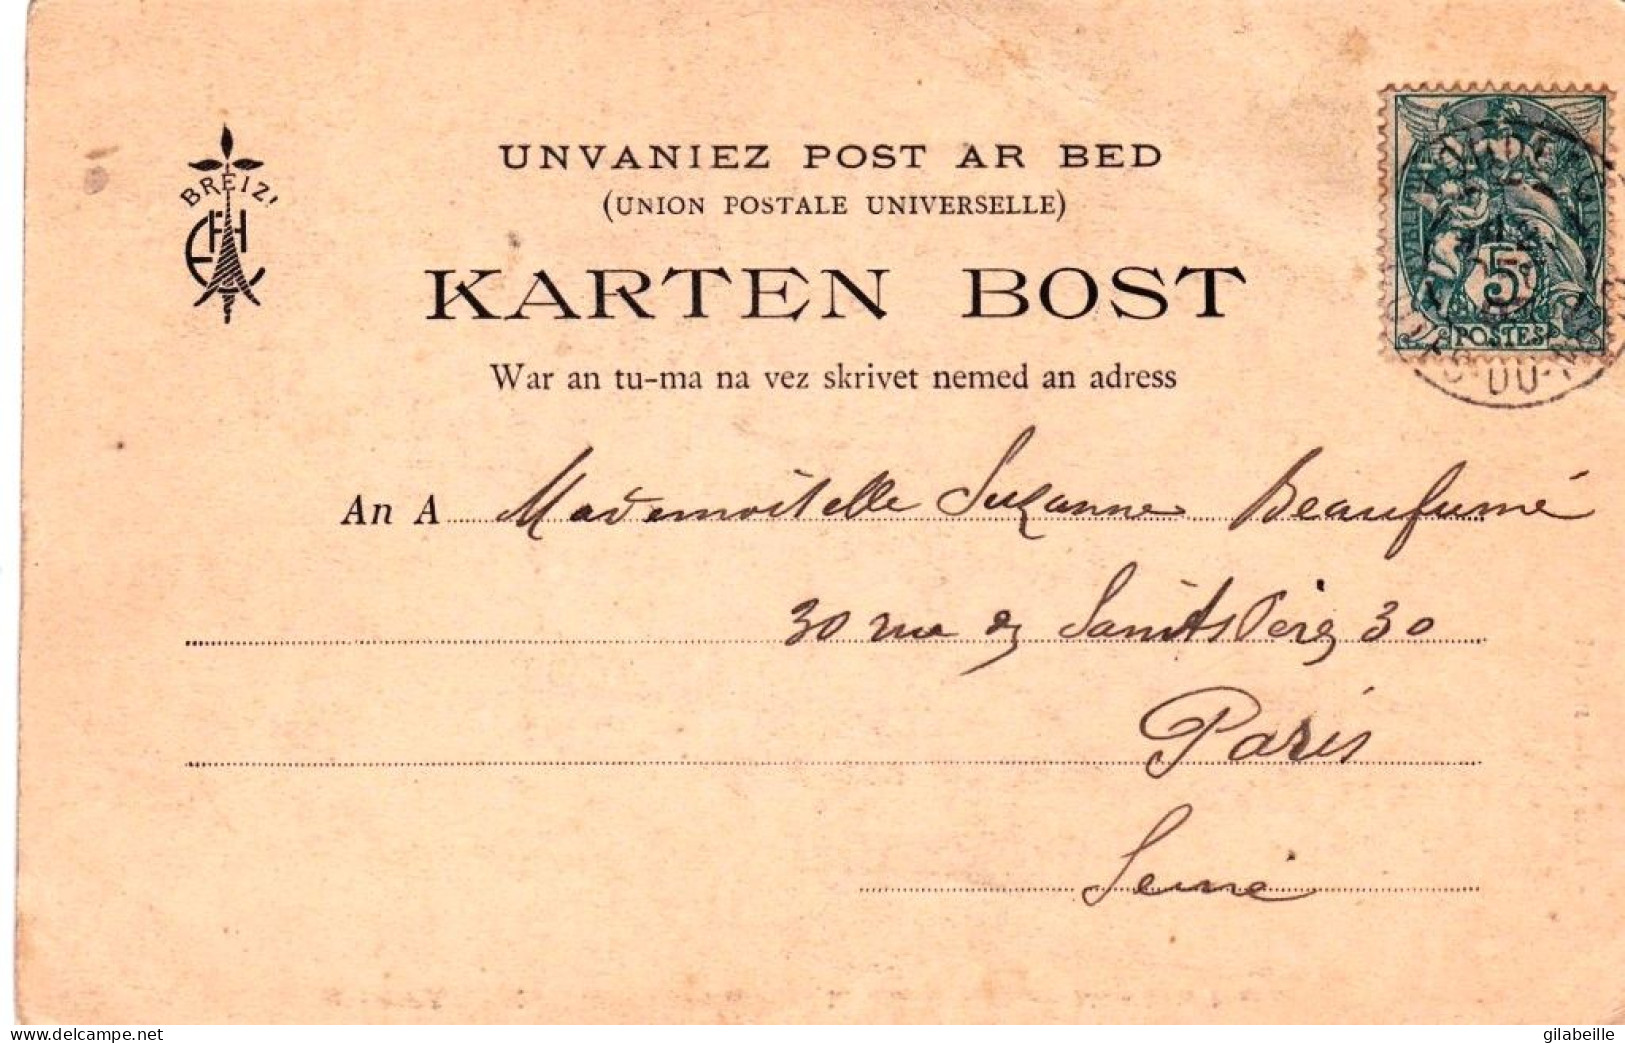 UNVANIEZ POST AR BED
(UNION POSTALE UNIVERSELLE)
BREIZ!
KARTEN BOST
5c
POSTES
War an tu-ma na vez skrivet nemed an adress
DU-N
An A Mademoiselle Suzanne Beaufumé
30 rue des Saints Pères 30
Paris
Seine
www.delcampe.net
gilabeille